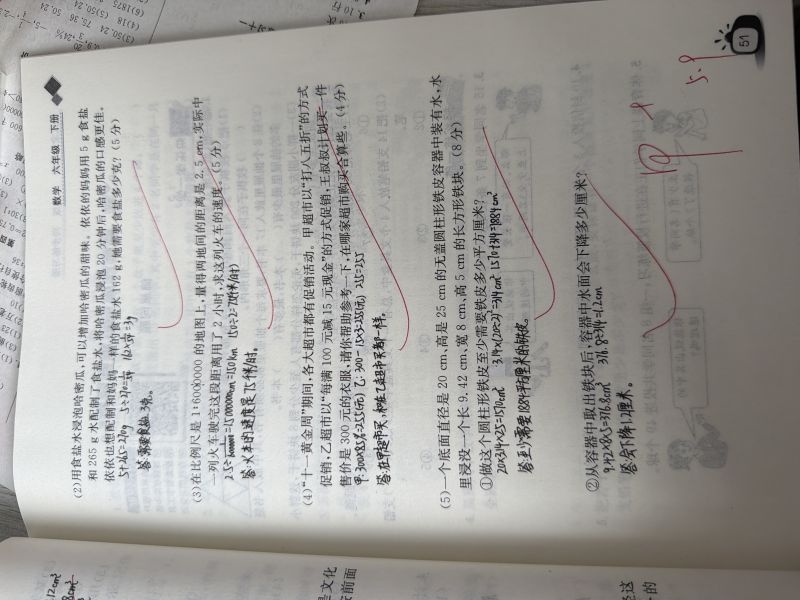 数学 六年级 下册
(2)用食盐水浸泡哈密瓜,可以增加哈密瓜的甜味。依依的妈妈用 5 g 食盐
和 265 g 水配制了食盐水,将哈密瓜浸泡 20 分钟后,哈密瓜的口感更佳。
依依也想配制和妈妈一样的食盐水 162 g,她需要食盐多少克?(5 分)
5+265=270g 5÷270=1/54 162×1/54=3g
答:需要食盐3克。
(3)在比例尺是 1:6000000 的地图上,量得两地间的距离是 2.5 cm,实际中
一列火车驶完这段距离用了 2 小时,求这列火车的速度。(5 分)
=15000000cm=150km 150÷2=75(千米/时)
答:火车的速度是75千米/时。
(4)“十一黄金周”期间,各大超市都有促销活动。甲超市以“打八五折”的方式
促销,乙超市以“每满 100 元减 15 元现金”的方式促销,王叔叔计划买一件
售价是 300 元的衣服,请你帮助参考一下,在哪家超市购买合算些。(4 分)
甲:300×85%=255(元) 乙:300-15×3=255(元) 255=255
答:在甲超市买和在乙超市买都一样。
(5)一个底面直径是 20 cm,高是 25 cm 的无盖圆柱形铁皮容器中装有水,水
里浸没一个长 9.42 cm,宽 8 cm,高 5 cm 的长方形铁块。(8 分)
①做这个圆柱形铁皮至少需要铁皮多少平方厘米?
20×3.14×25=1570cm² 3.14×(20÷2)²=314cm² 1570+314=1884cm²
答:至少需要1884平方厘米的铁皮。
②从容器中取出铁块后,容器中水面会下降多少厘米?
9.42×8×5=376.8cm³ 376.8÷314=1.2cm
答:会下降1.2厘米。
5.9
51